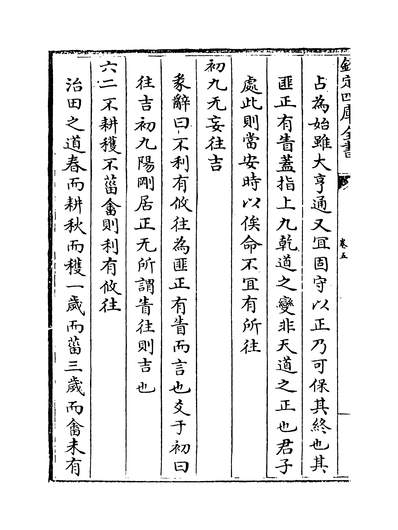 欽定四庫全書
卷五
占為始雖大亨通又宜固守以正乃可保其終也其
匪正有眚蓋指上九乾道之變非天道之正也君子
處此則當安時以俟命不宜有所往
初九无妄往吉
彖辭曰不利有攸往為匪正有眚而言也爻于初曰
往吉初九陽剛居正无所謂眚往則吉也
六二不耕穫不菑畬則利有攸往
治田之道春而耕秋而穫一歲而菑三歲而畬未有